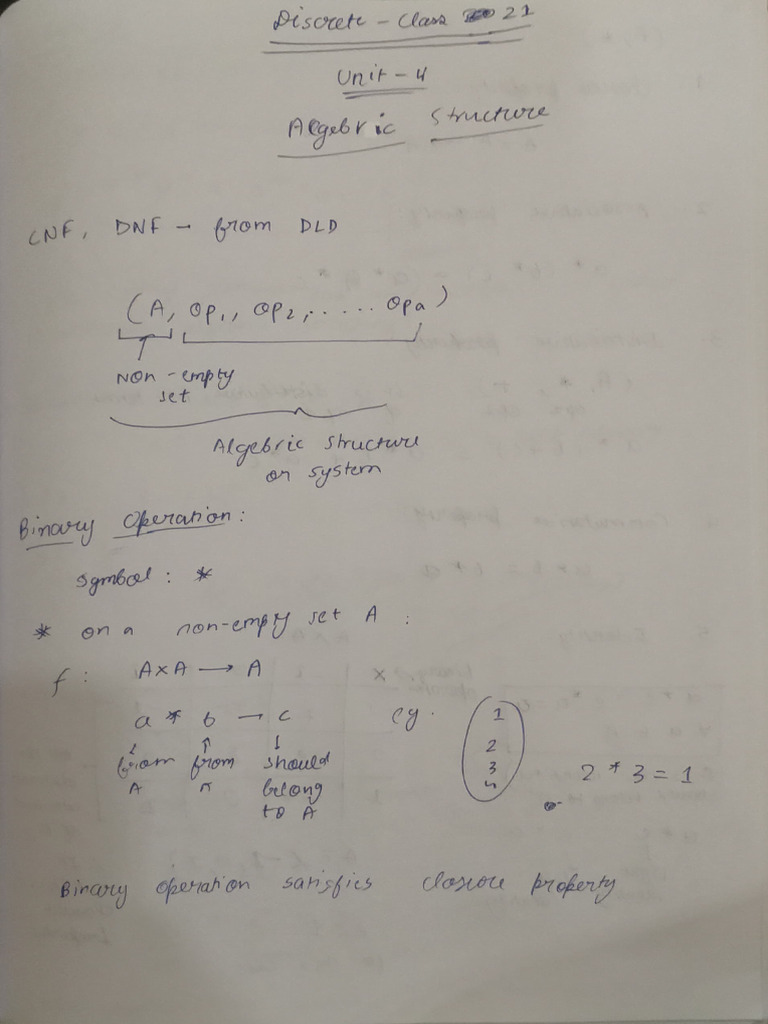 Discrete - Class 21
Unit - 4
Algebric Structure
CNF, DNF - from DLD
(A, Op1, Op2, ..... Opn)
Non-empty
set
Algebric structure
or system
Binary Operation:
Symbol: *
* on a non-empty set A :
f: A×A → A
a * b → c
from from should
A A belong
to A
eg. 1
2
3
4
2 * 3 = 1
Binary operation satisfies closure property